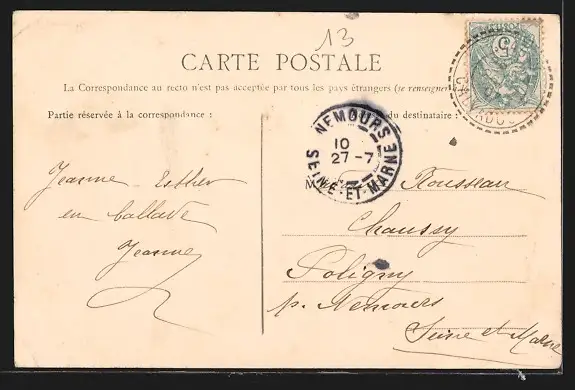 13
CARTE POSTALE
La Correspondance au recto n'est pas acceptée par tous les pays étrangers (se renseigner
Partie réservée à la correspondance :
du destinataire :
5
NEMOURS
10
27-7
SEINE-ET-MARNE
Jeanne Esther
en ballade
Jeanne
M
Rousseau
Chaussy
Poligny
p. Nemours
Seine et Marne